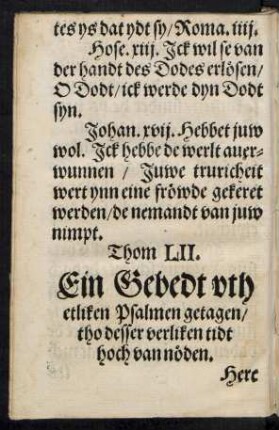 tes ys dat ydt sy/ Roma. iiij.
Hose. xiij. Jck wil se van
der handt des Dodes erlösen/
O Dodt/ ick werde dyn Dodt
syn.
Johan. xvij. Hebbet juw
wol. Jck hebbe de werlt auer-
wunnen / Juwe truricheit
wert ynn eine fröwde gekeret
werden/ de nemandt van juw
nimpt.
Thom LII.
Ein Gebedt vth
etliken Psalmen getagen/
tho desser verliken tidt
hoch van nöden.
Here